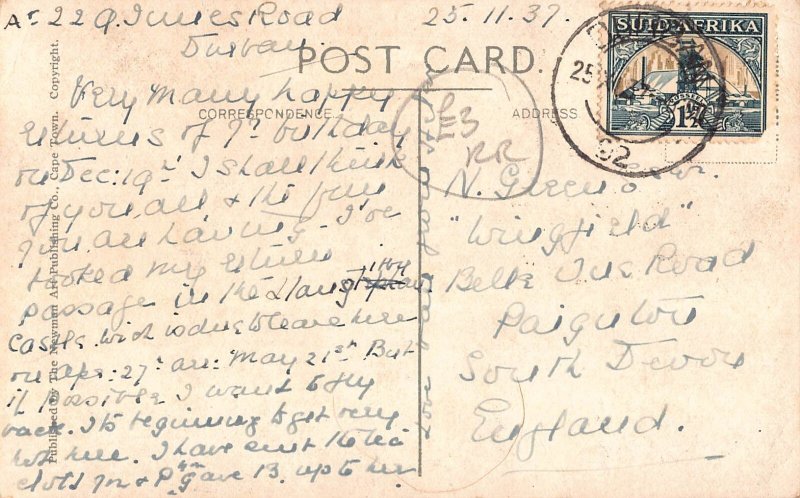 At 22 Q. Innes Road
Durban
25.11.37.
SUID-AFRIKA
POST CARD.
CORRESPONDENCE.
ADDRESS
25
62
1½
£3
RR
Very many happy
returns of yr birthday
on Dec: 19th I shall think
of you all & the fun
you are having. I've
booked my return
passage in the Llangibby
Castle wich is due to leave here
on Apr: 27th arr: May 21st But
if possible I want to fly
back. Its beginning to get very
hot here. I have sent the tea
cloth for & P gave B. up to her
Love from
N. Green Esqr.
"Wingfield"
Belle Vue Road
Paignton
South Devon
England.
Published by The Newman Art Publishing Co., Cape Town. Copyright.